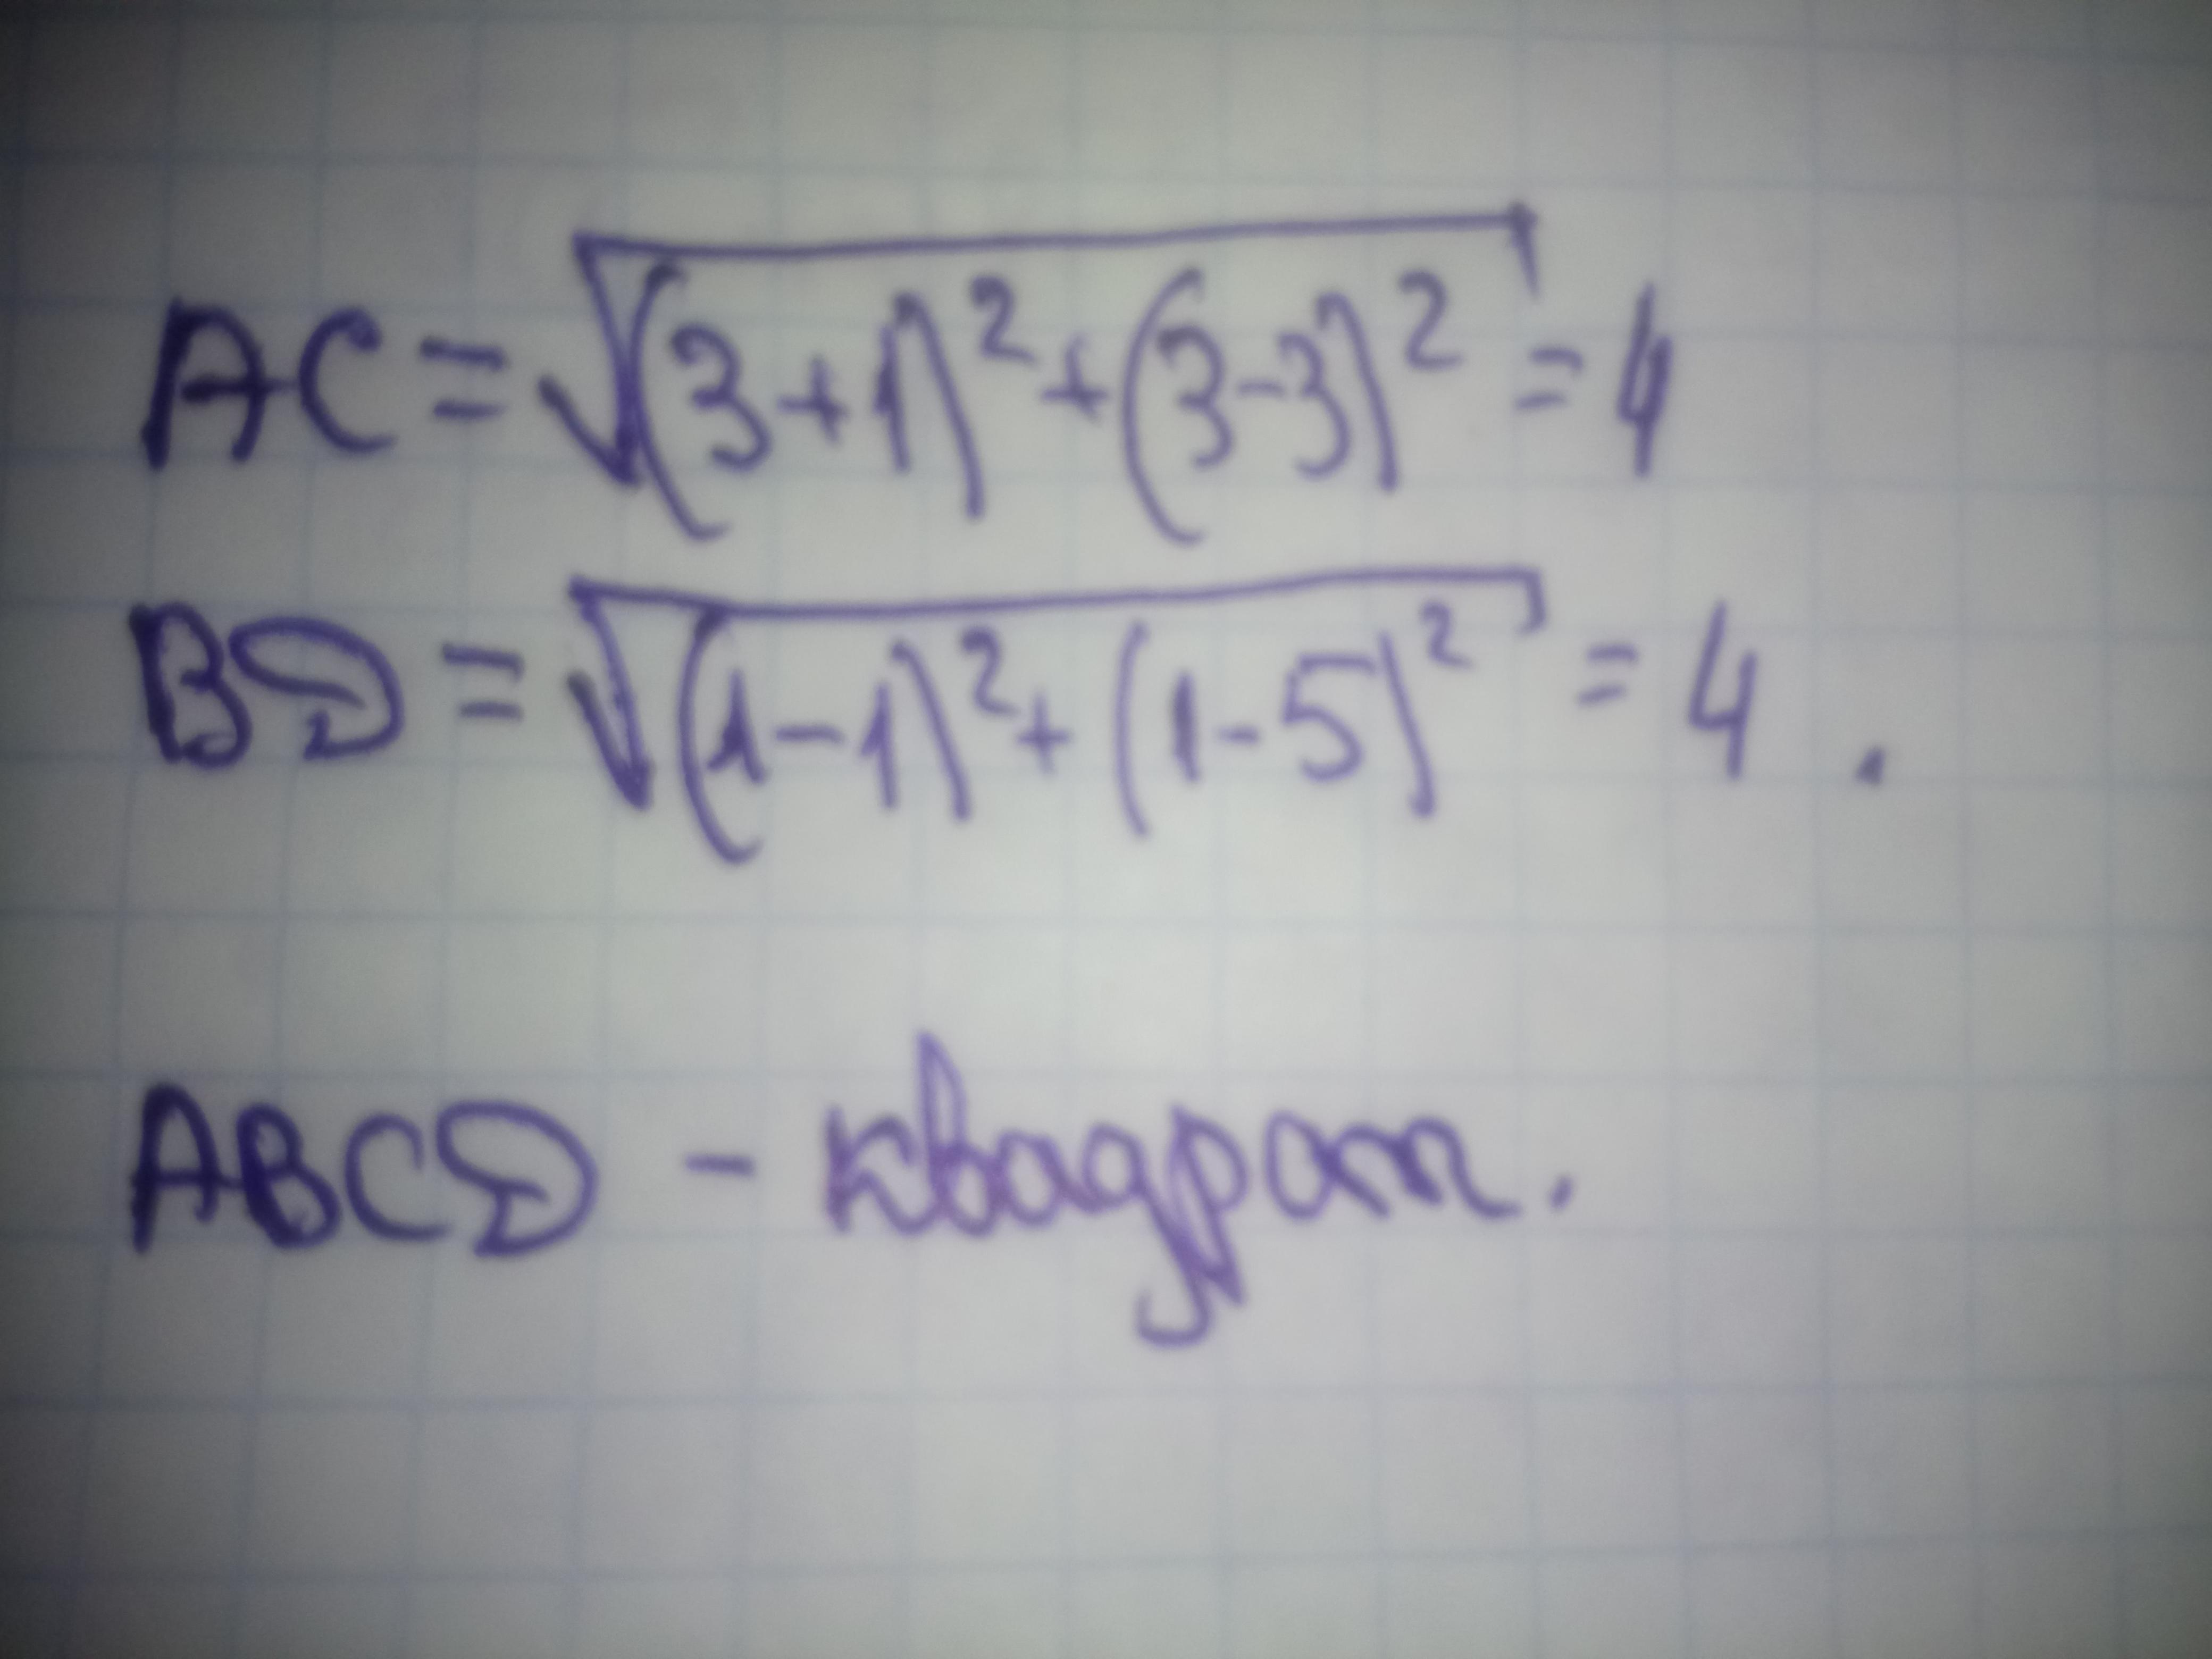 AC = √(3+1)² + (3-3)² = 4
BD = √(1-1)² + (1-5)² = 4 .
ABCD - квадрат.